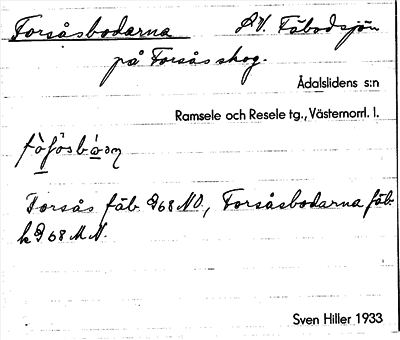 Forsåsbodarna SV. Fäbodsjön
på Forsås skog.
Ådalslidens s:n
Ramsele och Resele tg., Västernorrl. l.
Forsås fäb. 968 NO., Forsåsbodarna fäb.
k 968 M N.
Sven Hiller 1933